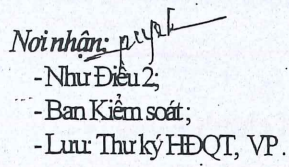 Nơi nhận:
- Như Điều 2;
- Ban Kiểm soát;
- Lưu: Thư ký HĐQT, VP.